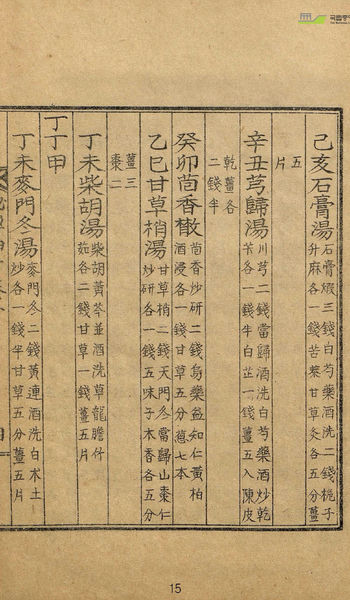 己亥石膏湯 石膏煅三錢白芍藥酒洗二錢梔子
升麻各一錢苦藥甘草炙各五分薑
五
片
辛丑芎歸湯 川芎二錢當歸酒洗白芍藥酒炒乾
芐各一錢半白芷一錢薑五入陳皮
乾薑各
二錢半
癸卯茴香橵 茴香炒研二錢烏藥益知仁黃柏
酒浸各一錢甘草五分蔥七本
乙巳甘草梢湯 甘草梢二錢天門冬當歸山棗仁
炒研各一錢五味子木香各五分
薑三
棗二
丁未柴胡湯 柴胡黃芩並酒洗草龍膽竹
茹各二錢甘草一錢薑五片
丁丁甲
丁未麥門冬湯 麥門冬二錢黃連酒洗白朮土
炒各一錢半甘草五分薑五片
15